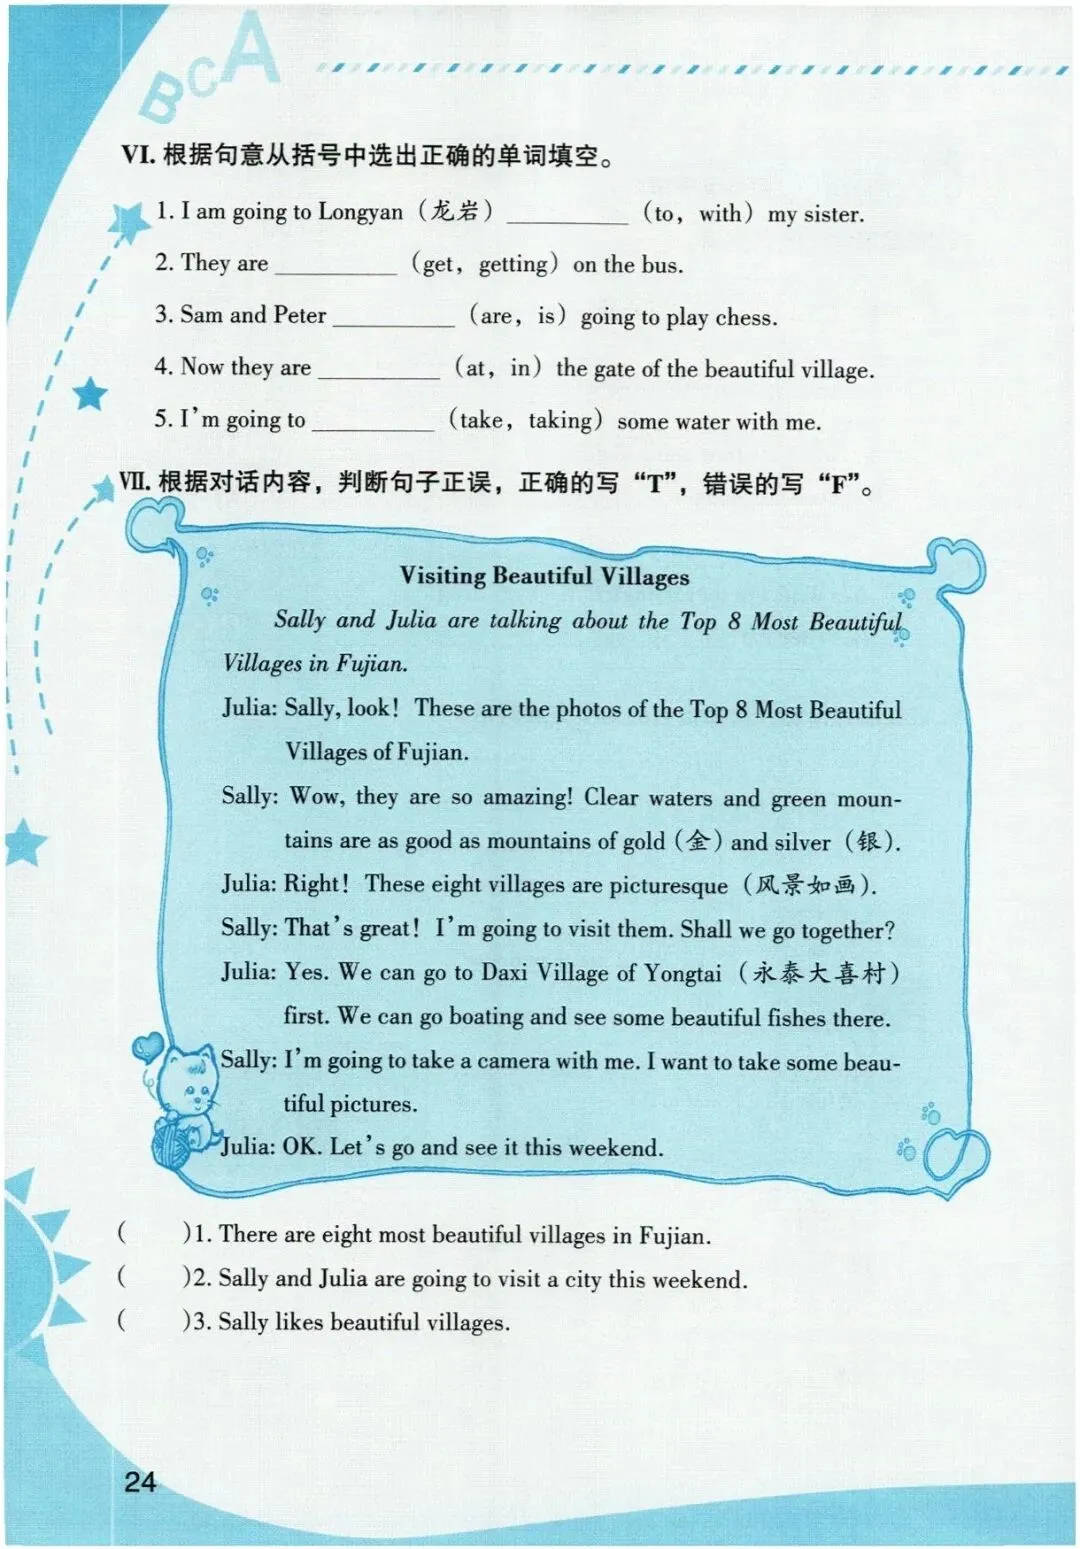 BCA
VI. 根据句意从括号中选出正确的单词填空。
1. I am going to Longyan（龙岩）__________（to，with）my sister.
2. They are __________（get，getting）on the bus.
3. Sam and Peter __________（are，is）going to play chess.
4. Now they are __________（at，in）the gate of the beautiful village.
5. I’m going to __________（take，taking）some water with me.
Ⅶ. 根据对话内容，判断句子正误，正确的写“T”，错误的写“F”。
Visiting Beautiful Villages
Sally and Julia are talking about the Top 8 Most Beautiful
Villages in Fujian.
Julia: Sally, look! These are the photos of the Top 8 Most Beautiful
Villages of Fujian.
Sally: Wow, they are so amazing! Clear waters and green moun-
tains are as good as mountains of gold（金）and silver（银）.
Julia: Right! These eight villages are picturesque（风景如画）.
Sally: That’s great! I’m going to visit them. Shall we go together?
Julia: Yes. We can go to Daxi Village of Yongtai（永泰大喜村）
first. We can go boating and see some beautiful fishes there.
Sally: I’m going to take a camera with me. I want to take some beau-
tiful pictures.
Julia: OK. Let’s go and see it this weekend.
(    )1. There are eight most beautiful villages in Fujian.
(    )2. Sally and Julia are going to visit a city this weekend.
(    )3. Sally likes beautiful villages.
24